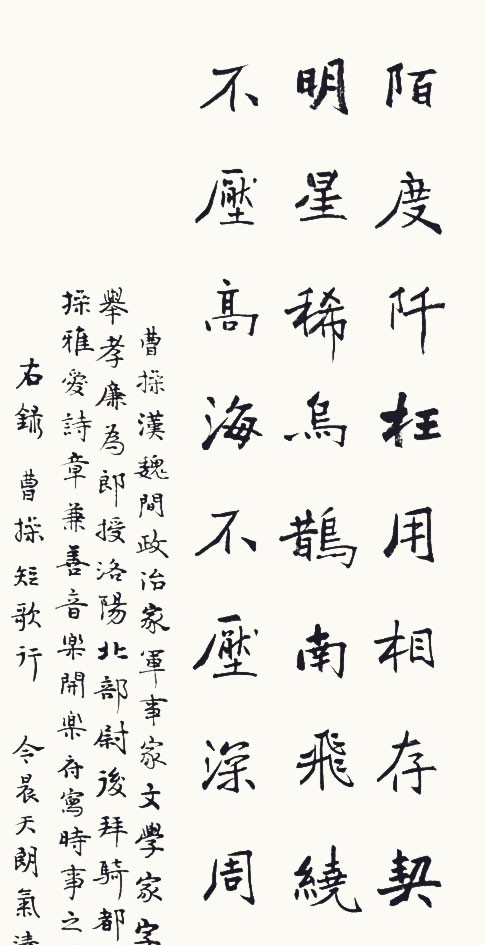 陌度阡枉用相存契
明星稀烏鵲南飛繞
不壓高海不壓深周
曹操漢魏間政治家軍事家文學家字
舉孝廉為郎授洛陽北部尉後拜騎都
操雅愛詩章兼善音樂開樂府寫時事之
右錄 曹操短歌行 今晨天朗氣清